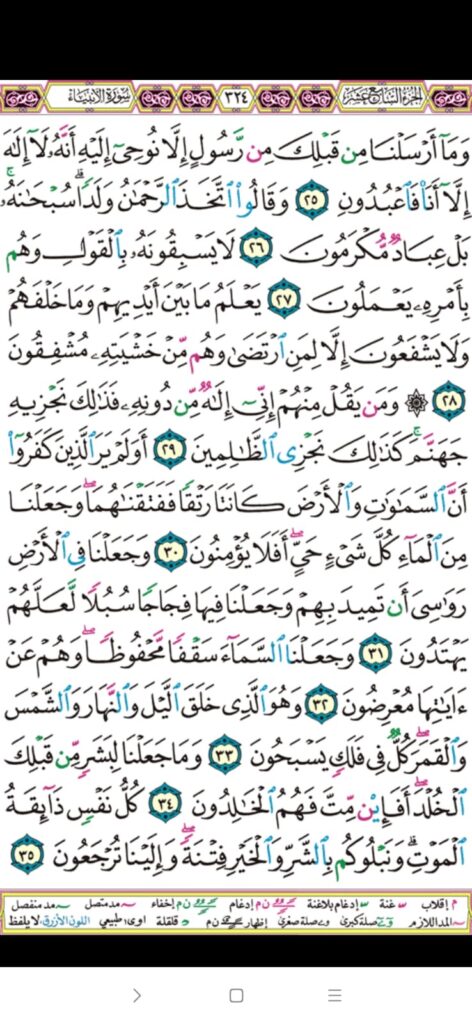 الجزء السابع عشر ٣٢٤ سورة الأنبياء
وَمَآ أَرْسَلْنَا مِن قَبْلِكَ مِن رَّسُولٍ إِلَّا نُوحِىٓ إِلَيْهِ أَنَّهُۥ لَآ إِلَٰهَ
إِلَّآ أَنَا۠ فَٱعْبُدُونِ ٢٥ وَقَالُوا۟ ٱتَّخَذَ ٱلرَّحْمَٰنُ وَلَدًا ۗ سُبْحَٰنَهُۥ ۚ
بَلْ عِبَادٌ مُّكْرَمُونَ ٢٦ لَا يَسْبِقُونَهُۥ بِٱلْقَوْلِ وَهُم
بِأَمْرِهِۦ يَعْمَلُونَ ٢٧ يَعْلَمُ مَا بَيْنَ أَيْدِيهِمْ وَمَا خَلْفَهُمْ
وَلَا يَشْفَعُونَ إِلَّا لِمَنِ ٱرْتَضَىٰ وَهُم مِّنْ خَشْيَتِهِۦ مُشْفِقُونَ
٢٨ ۞ وَمَن يَقُلْ مِنْهُمْ إِنِّىٓ إِلَٰهٌ مِّن دُونِهِۦ فَذَٰلِكَ نَجْزِيهِ
جَهَنَّمَ ۚ كَذَٰلِكَ نَجْزِى ٱلظَّٰلِمِينَ ٢٩ أَوَلَمْ يَرَ ٱلَّذِينَ كَفَرُوٓا۟
أَنَّ ٱلسَّمَٰوَٰتِ وَٱلْأَرْضَ كَانَتَا رَتْقًا فَفَتَقْنَٰهُمَا ۖ وَجَعَلْنَا
مِنَ ٱلْمَآءِ كُلَّ شَىْءٍ حَىٍّ ۖ أَفَلَا يُؤْمِنُونَ ٣٠ وَجَعَلْنَا فِى ٱلْأَرْضِ
رَوَٰسِىَ أَن تَمِيدَ بِهِمْ وَجَعَلْنَا فِيهَا فِجَاجًا سُبُلًا لَّعَلَّهُمْ
يَهْتَدُونَ ٣١ وَجَعَلْنَا ٱلسَّمَآءَ سَقْفًا مَّحْفُوظًا ۖ وَهُمْ عَنْ
ءَايَٰتِهَا مُعْرِضُونَ ٣٢ وَهُوَ ٱلَّذِى خَلَقَ ٱلَّيْلَ وَٱلنَّهَارَ وَٱلشَّمْسَ
وَٱلْقَمَرَ ۖ كُلٌّ فِى فَلَكٍ يَسْبَحُونَ ٣٣ وَمَا جَعَلْنَا لِبَشَرٍ مِّن قَبْلِكَ
ٱلْخُلْدَ ۖ أَفَإِي۟ن مِّتَّ فَهُمُ ٱلْخَٰلِدُونَ ٣٤ كُلُّ نَفْسٍ ذَآئِقَةُ
ٱلْمَوْتِ ۗ وَنَبْلُوكُم بِٱلشَّرِّ وَٱلْخَيْرِ فِتْنَةً ۖ وَإِلَيْنَا تُرْجَعُونَ ٣٥
م إقلاب غنة إدغام بلاغنة ن م إدغام ن م إخفاء مد متصل مد منفصل
المد اللازم صلة كبرى صلة صغرى إظهار ن م قلقلة اوى: طبيعي اللون الأزرق: لا يلفظ